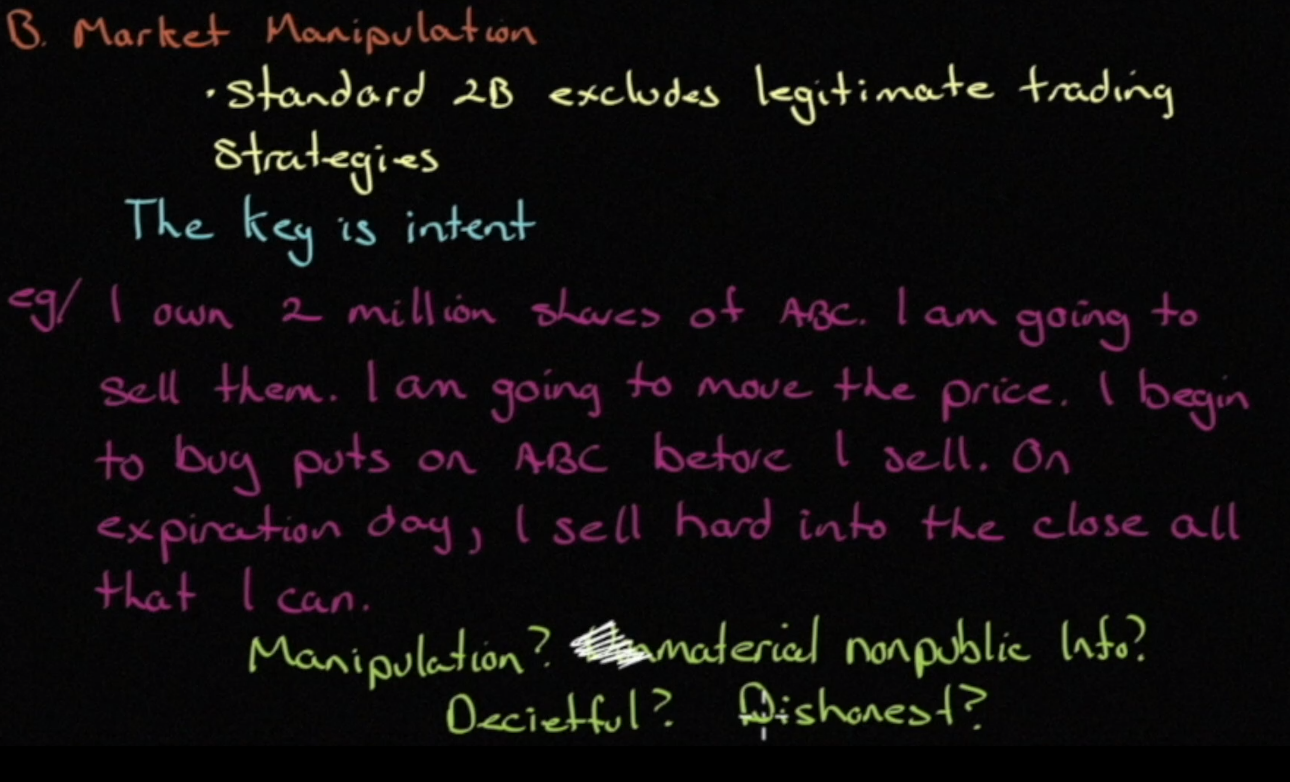 B. Market Manipulation
· Standard 2B excludes legitimate trading
strategies
The key is intent
eg/ I own 2 million shares of ABC. I am going to
sell them. I am going to move the price. I begin
to buy puts on ABC before I sell. On
expiration day, I sell hard into the close all
that I can.
Manipulation? material nonpublic Info?
Decietful? Dishonest?